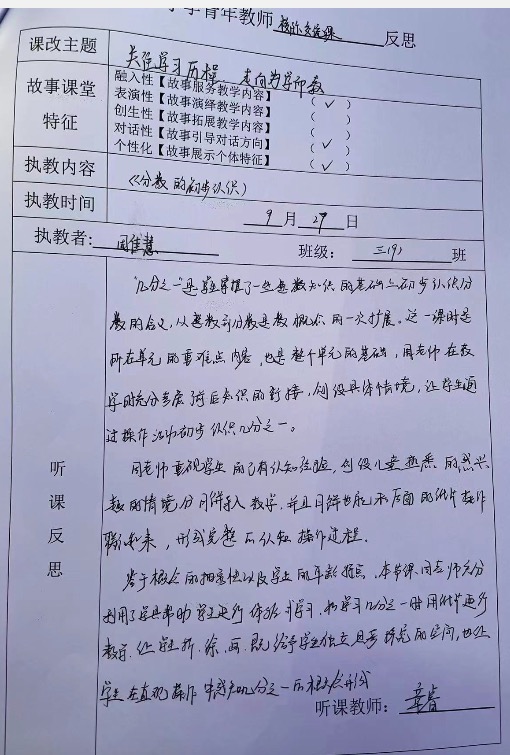 青年教师 反思
课改主题 关注学习历程，走向为学而教
故事课堂特征
融入性【故事服务教学内容】（✓）
表演性【故事演绎教学内容】（ ）
创生性【故事拓展教学内容】（ ）
对话性【故事引导对话方向】（✓）
个性化【故事展示个体特征】（✓）
执教内容 《分数的初步认识》
执教时间 9月27日
执教者：周佳慧 班级：三(9)班
听课反思
"几分之一"是学生掌握了一些整数知识的基础上初步认识分
数的含义，从整数到分数是数概念的一次扩展。这一课时是
所在单元的重难点内容，也是整个单元的基础，周老师在教
学时充分考虑了前后知识的衔接，创设具体情境，让学生通
过操作活动初步认识几分之一。
周老师重视学生的已有认知经验，创设儿童熟悉的感兴
趣的情境分月饼引入教学，并且月饼也能和后面的纸片操作
联系起来，形成完整的认知操作过程。
鉴于概念的抽象性以及学生的年龄特点，本节课周老师充分
利用了学具帮助学生进行体验式学习，和学习几分之一时用纸片进行
教学，让学生折、涂、画，既给予学生独立思考探究的空间，也让
学生在直观操作中感知几分之一的概念形成
听课教师：